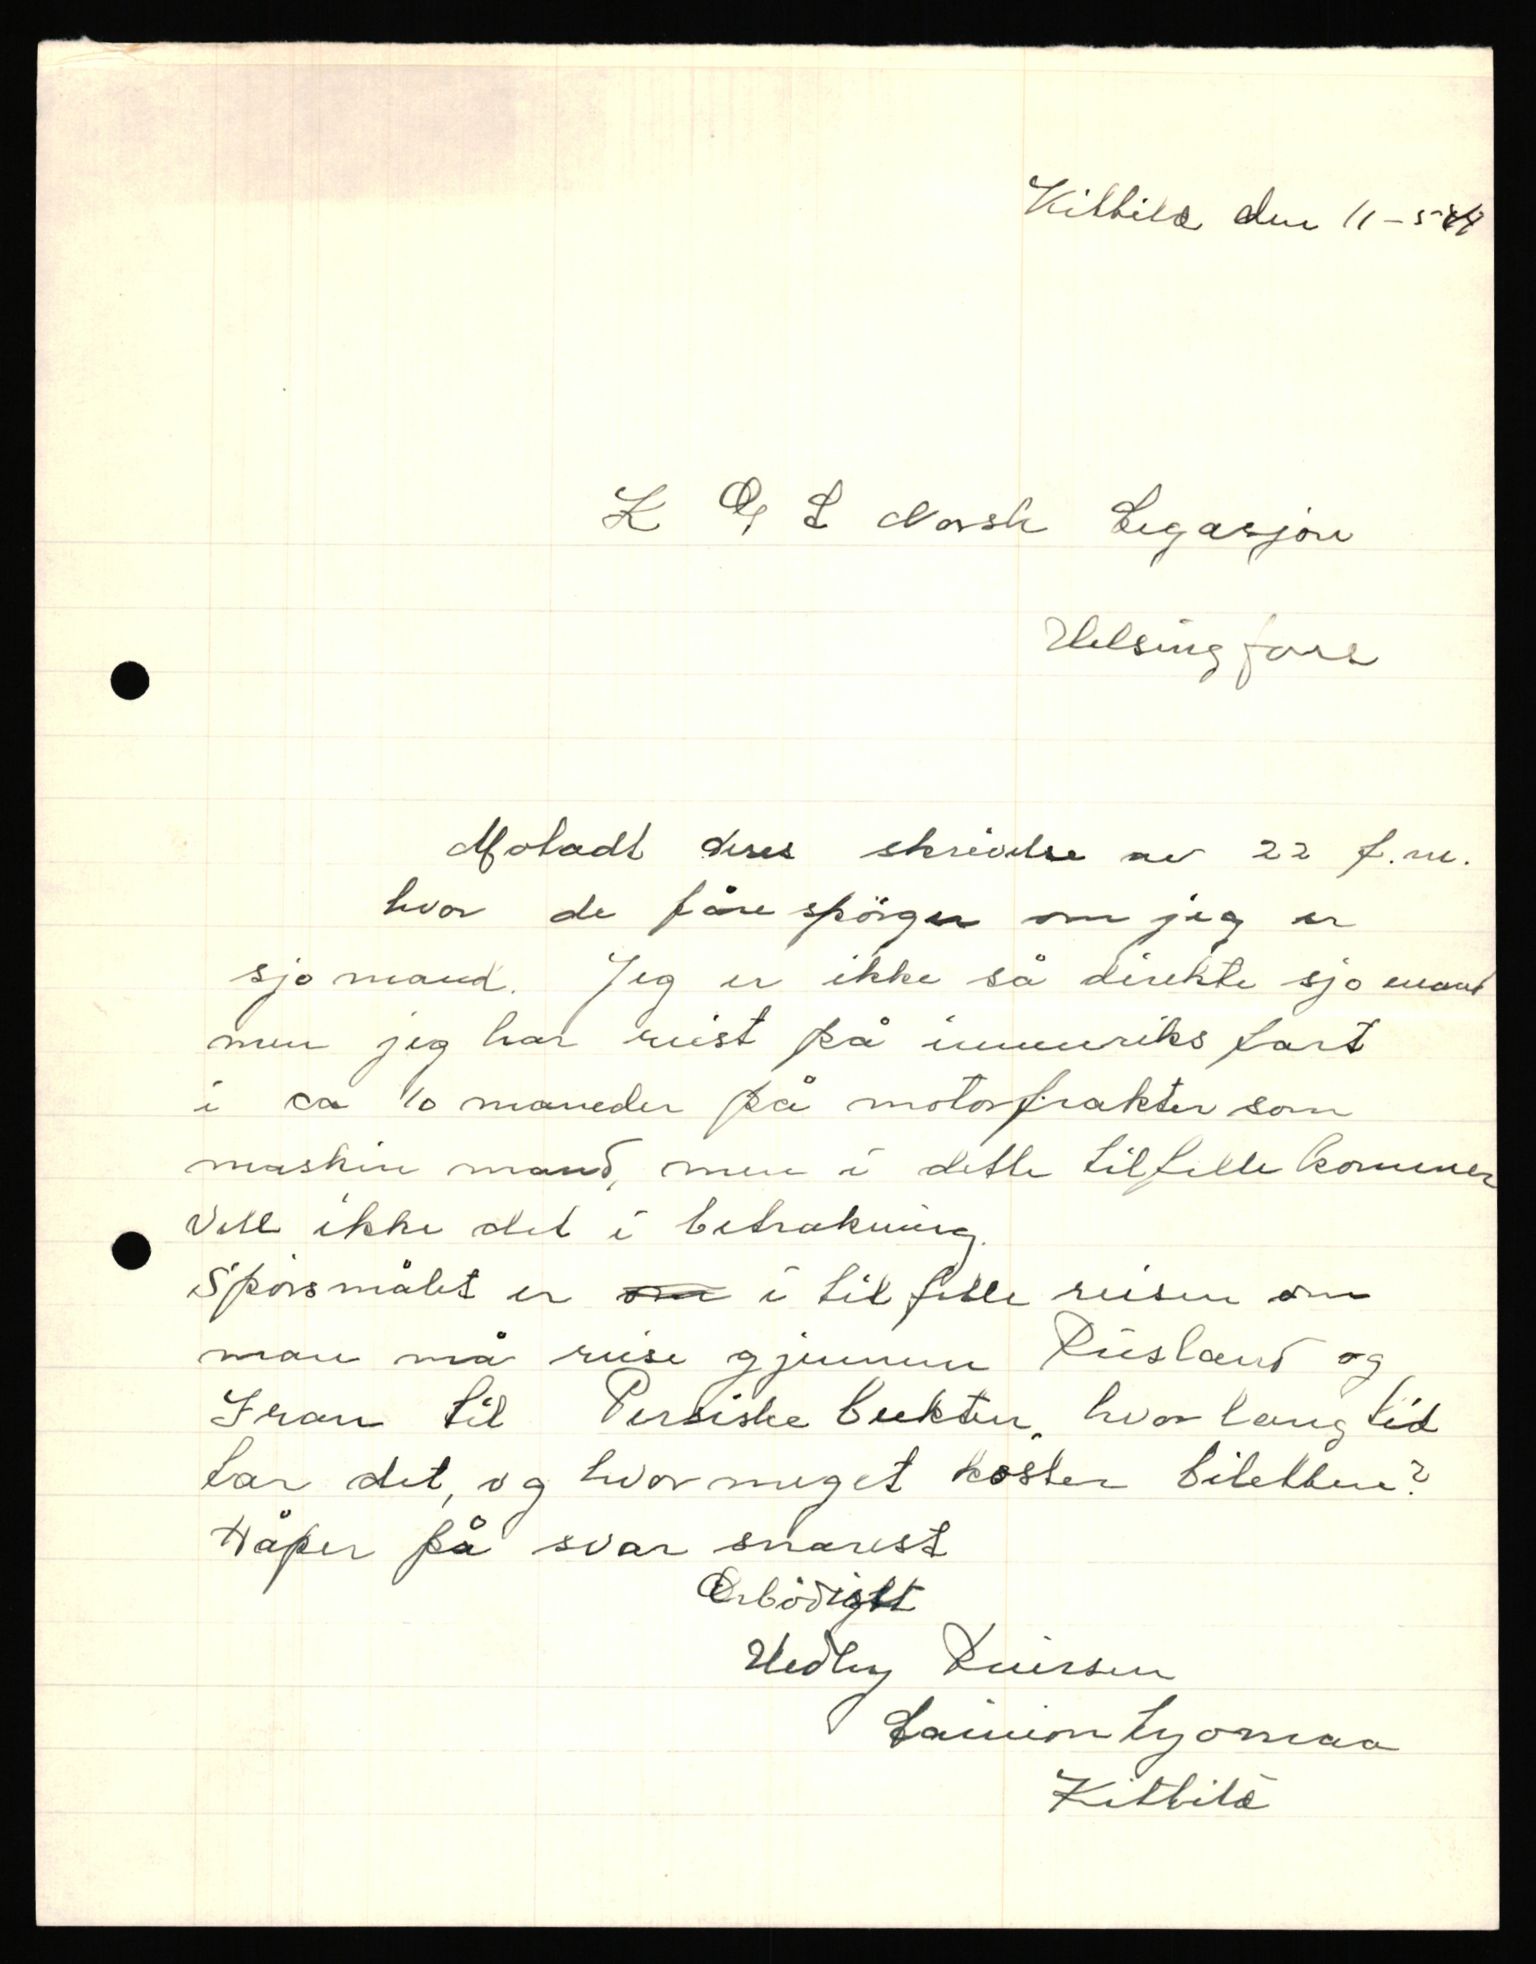 Kittilä den 11-5-
K G L Norsk Legasjon
Helsingfors
Motadt deres skrivelse av 22 f.m.
hvor de fårespörger om jeg er
sjo mand. Jeg er ikke så direkte sjo mand
men jeg har reist på innenriks fart
i ca 10 maneder på motorfrakter som
maskin mand, men i dette tilfelle kommer
vell ikke det i betrakning.
Spörsmålet er i tilfelle reisen om
man må reise gjennem Rusland og
Iran til Persiske bukten, hvor lang tid
tar det, og hvor meget koster biletten?
Håper på svar snarest
Erbödigst
Hedley
Kittilä